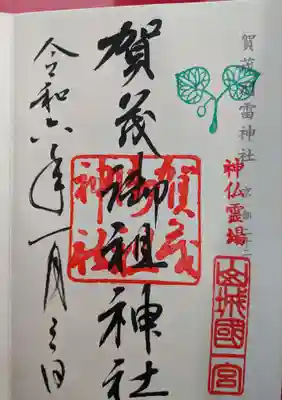 賀茂別雷神社 京都
神仏霊場
山城國一宮
賀茂御祖神社
賀茂
御祖
神社
令和六年一月三日